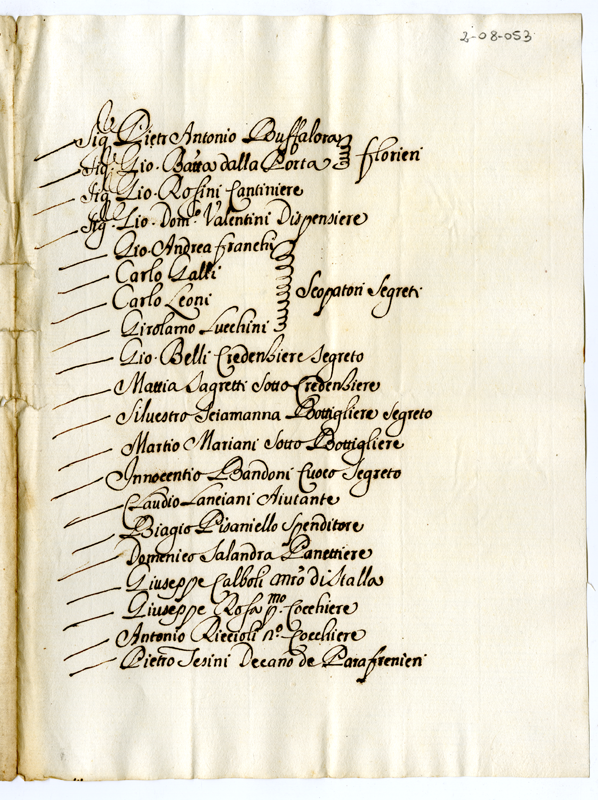 2-08-053
Sig.r Pietr Antonio Buffalora
Sig.r Gio. Batta dalla Porta
florieri
Sig.r Gio. Rosini Cantiniere
Sig.r Gio. Dom.o Valentini Dispensiere
Gio. Andrea franchi
Carlo Galli
Carlo Leoni
Scopatori Segreti
Girolamo Lucchini
Gio. Belli Credenziere segreto
Mattia Sagretti Sotto Credenziere
Silvestro Sciamanna Bottigliere segreto
Martio Mariani Sotto Bottigliere
Innocentio Bandoni Cuoco Segreto
Claudio Lanciani Aiutante
Biagio Pisaniello Spenditore
Domenico Salandra Panettiere
Giuseppe Calboli mro di stalla
Giuseppe Rosa p.mo Cocchiere
Antonio Riccioli n.o Cocchiere
Pietro Tesini Decano de Parafrenieri